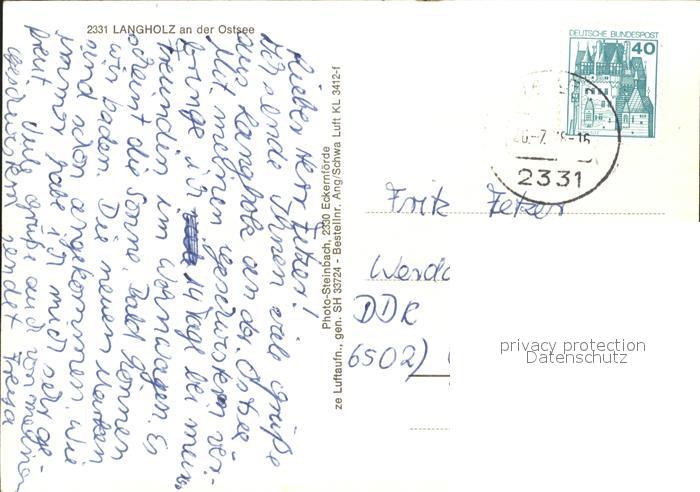 2331 LANGHOLZ an der Ostsee
Lieber Herr Fetzer!
Ich sende Ihnen viele Grüße
aus Langholz an der Ostsee.
Mit meinen Geschwistern ver-
bringe ich 14 Tage bei meinen
Freunden im Wohnwagen. Es
scheint die Sonne. Bald können
wir baden. Die neuen Marken
sind schon angekommen. Wie
immer habe ich mich sehr ge-
freut. Viele Grüße auch von meinen
Geschwistern sendet Freya
Photo-Steinbach, 2330 Eckernförde
ze Luftaufn., gen. SH 33724 - Bestellnr. Ang/Schwa Luft KL 3412-f
DEUTSCHE BUNDESPOST
40
2331
Fritz Fetzer
Werda
DDR
6502)
privacy protection
Datenschutz